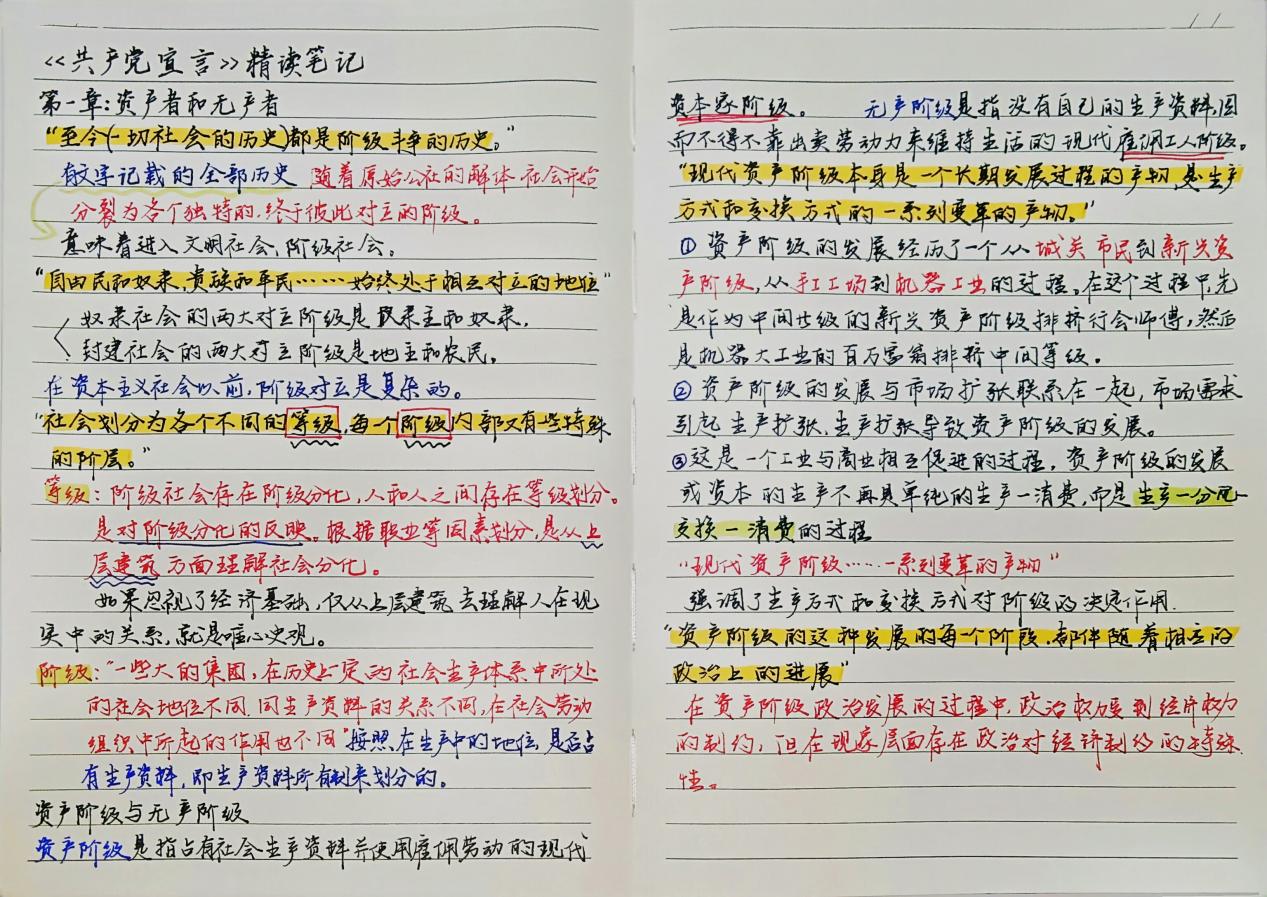 《共产党宣言》精读笔记
第一章:资产者和无产者
“至今(一切社会的历史)都是阶级斗争的历史。”
有文字记载的全部历史 随着原始公社的解体 社会开始
分裂为各个独特的,终于彼此对立的阶级。
意味着进入文明社会、阶级社会。
“自由民和奴隶,贵族和平民……始终处于相互对立的地位”
奴隶社会的两大对立阶级是奴隶主和奴隶,
封建社会的两大对立阶级是地主和农民,
在资本主义社会以前,阶级对立是复杂的。
“社会划分为各个不同的等级,每一个阶级内部又有一些特殊
的阶层。”
等级:阶级社会存在阶级分化,人和人之间存在等级划分。
是对阶级分化的反映。根据职业等因素划分,是从上
层建筑方面理解社会分化。
如果忽视了经济基础,仅从上层建筑去理解人在现
实中的关系,就是唯心史观。
阶级:“一些大的集团,在历史上一定的社会生产体系中所处
的社会地位不同,同生产资料的关系不同,在社会劳动
组织中所起的作用也不同”按照在生产中的地位,是否占
有生产资料,即生产资料所有制来划分的。
资产阶级与无产阶级
资产阶级是指占有社会生产资料并使用雇佣劳动的现代
资本家阶级。 无产阶级是指没有自己的生产资料,因
而不得不靠出卖劳动力来维持生活的现代雇佣工人阶级。
“现代资产阶级本身是一个长期发展过程的产物,是生产
方式和交换方式的一系列变革的产物。”
① 资产阶级的发展经历了一个从城关市民到新兴资
产阶级,从手工工场到机器工业的过程。在这个过程中,先
是作为中间等级的新兴资产阶级排挤行会师傅,然后
是机器大工业的百万富翁排挤中间等级。
② 资产阶级的发展与市场扩张联系在一起,市场需求
引起生产扩张,生产扩张导致资产阶级的发展。
③这是一个工业与商业相互促进的过程,资产阶级的发展
或资本的生产不再是单纯的生产一消费,而是生产一分配
交换一消费的过程
“现代资产阶级……一系列变革的产物”
强调了生产方式和交换方式对阶级的决定作用.
“资产阶级的这种发展的每一个阶段,都伴随着相应的
政治上的进展”
在资产阶级政治发展的过程中,政治权力受到经济权力
的制约,但在现象层面存在政治对经济制约的特殊
性。